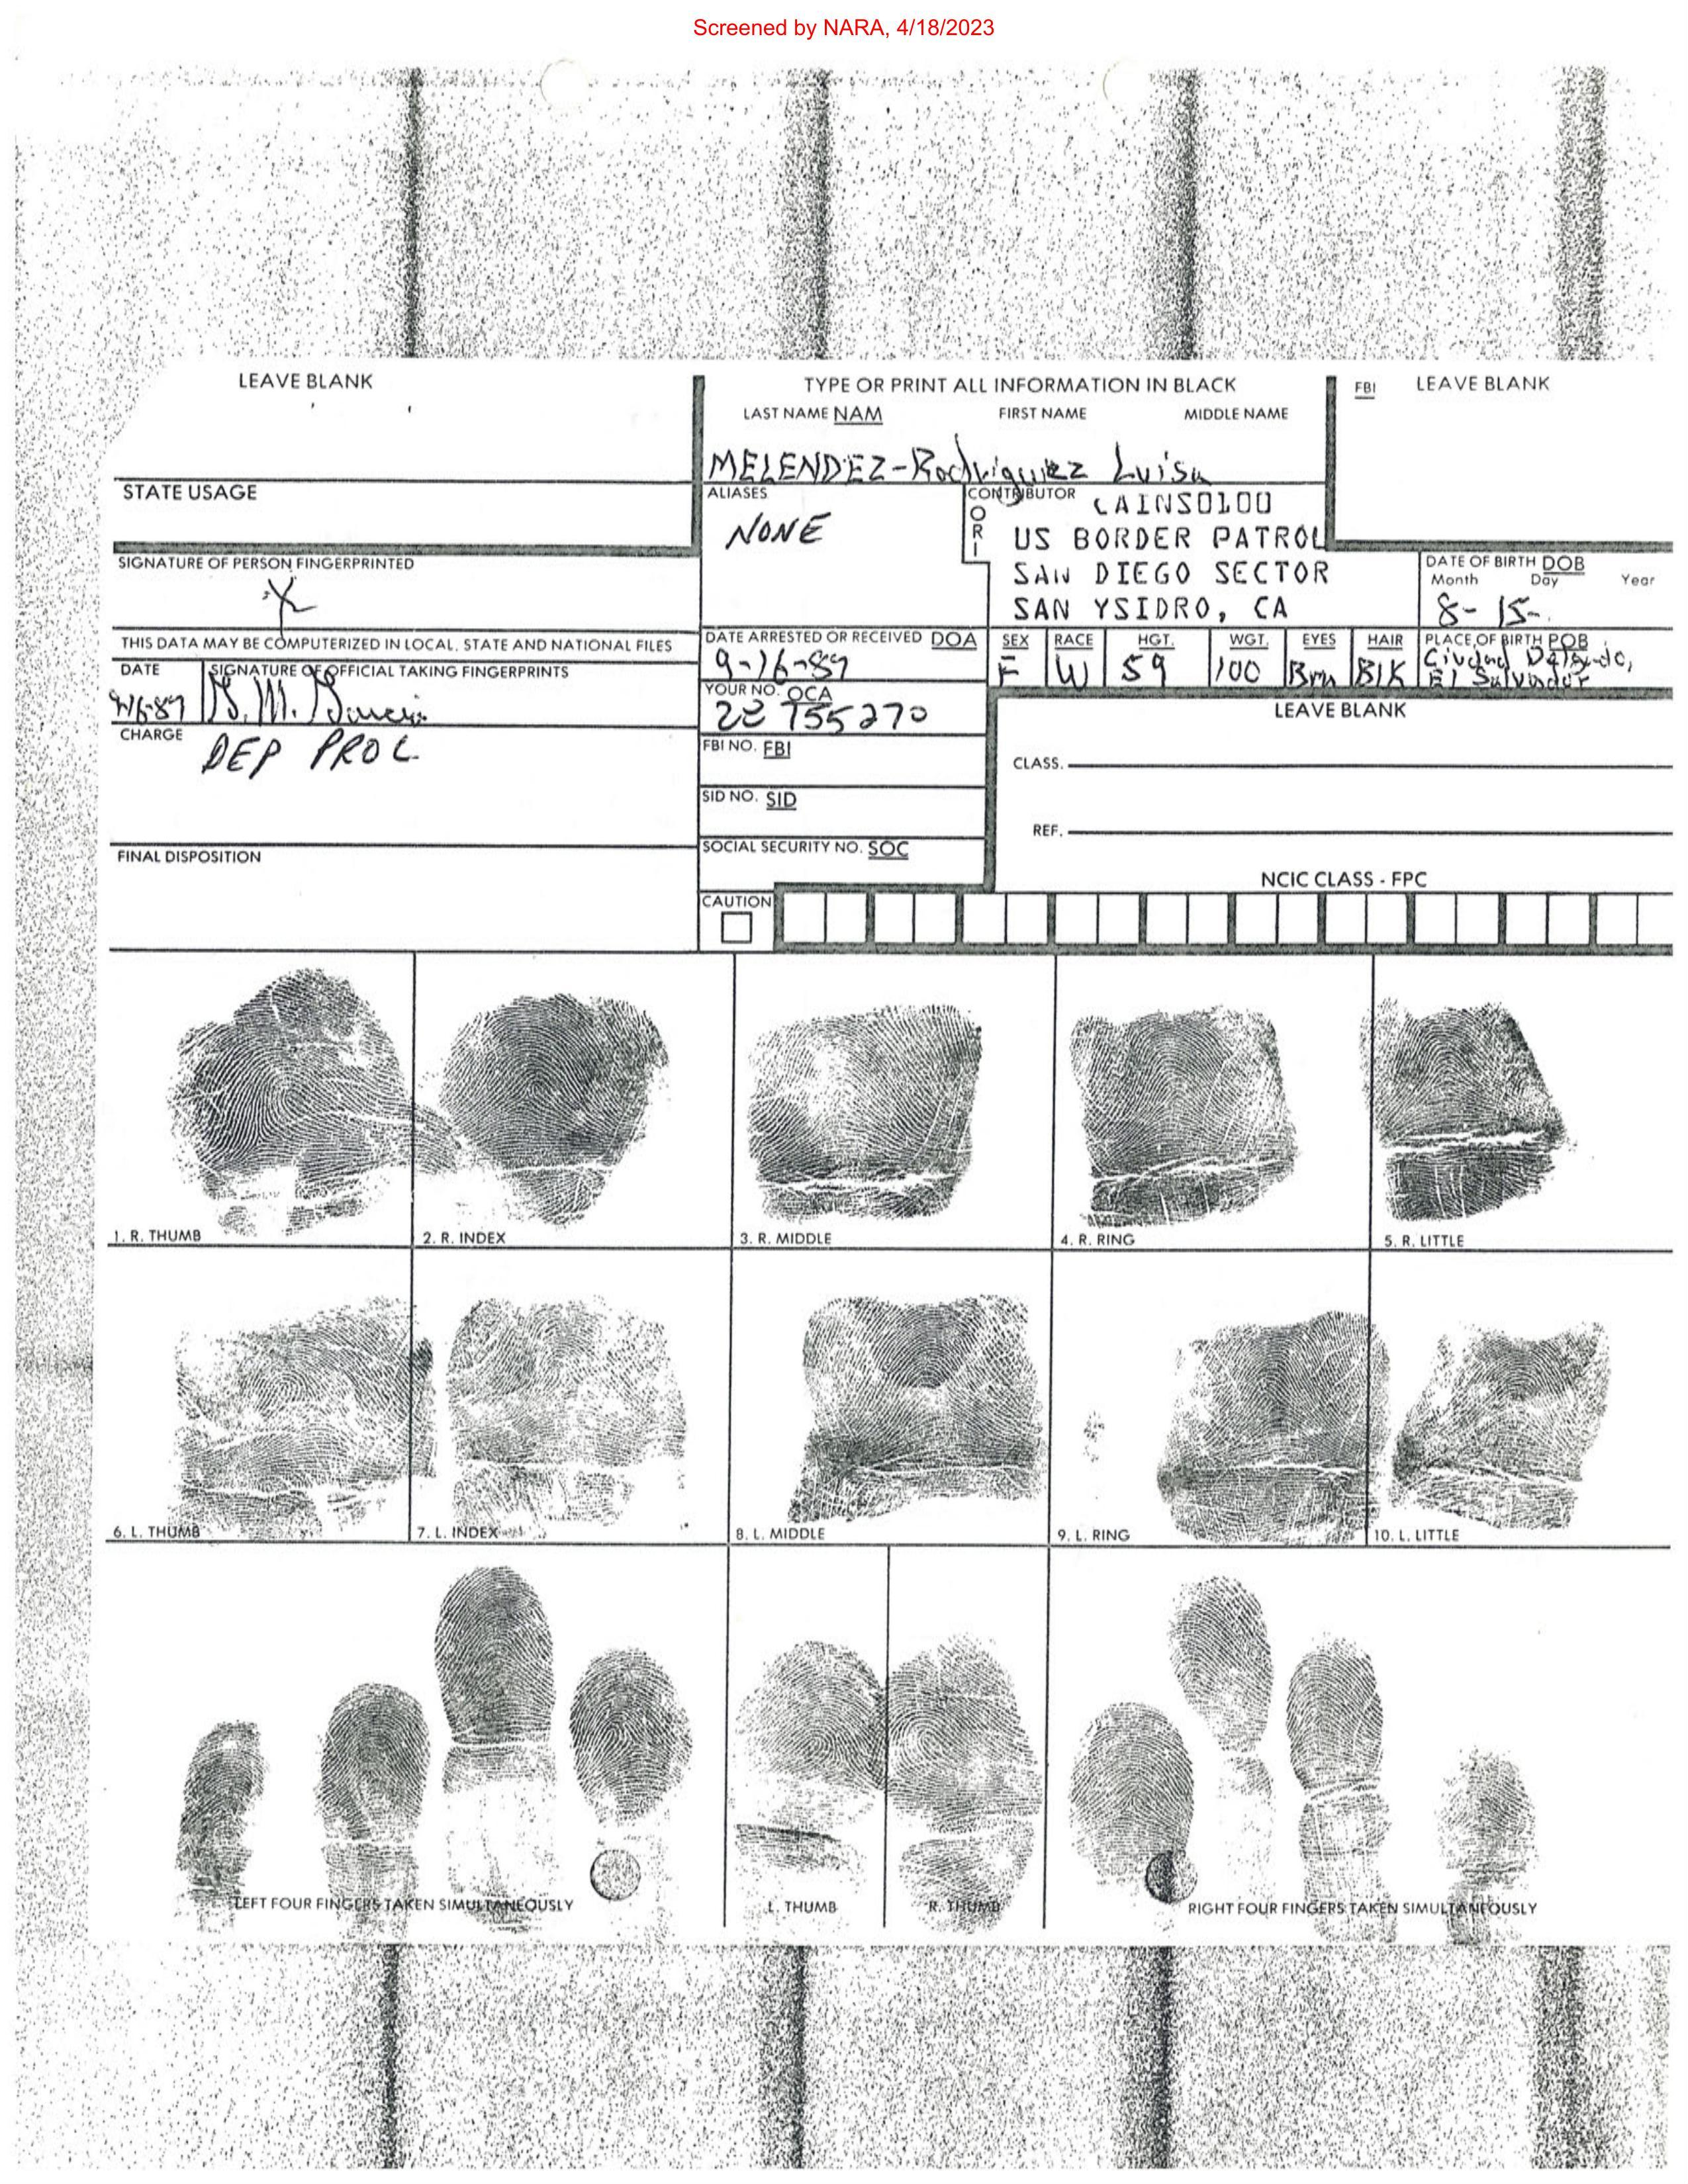 Screened by NARA, 4/18/2023
LEAVE BLANK
TYPE OR PRINT ALL INFORMATION IN BLACK
FBI LEAVE BLANK
LAST NAME NAM FIRST NAME MIDDLE NAME
MELENDEZ-Rodriguez Luisa
STATE USAGE
ALIASES
NONE
CONTRIBUTOR
ORI
CAINS0100
US BORDER PATROL
SAN DIEGO SECTOR
SAN YSIDRO, CA
SIGNATURE OF PERSON FINGERPRINTED
X
DATE OF BIRTH DOB
Month Day Year
8-15-
THIS DATA MAY BE COMPUTERIZED IN LOCAL, STATE AND NATIONAL FILES
DATE ARRESTED OR RECEIVED DOA
9-16-89
SEX RACE HGT. WGT. EYES HAIR PLACE OF BIRTH POB
F W 59 100 Brn Blk Ciudad
El Salvador
DATE SIGNATURE OF OFFICIAL TAKING FINGERPRINTS
9/16-89
YOUR NO. OCA
LEAVE BLANK
CHARGE
DEP PROC
FBI NO. FBI
CLASS.
SID NO. SID
REF.
FINAL DISPOSITION
SOCIAL SECURITY NO. SOC
NCIC CLASS - FPC
CAUTION
1. R. THUMB 2. R. INDEX 3. R. MIDDLE 4. R. RING 5. R. LITTLE
6. L. THUMB 7. L. INDEX 8. L. MIDDLE 9. L. RING 10. L. LITTLE
LEFT FOUR FINGERS TAKEN SIMULTANEOUSLY L. THUMB R. THUMB RIGHT FOUR FINGERS TAKEN SIMULTANEOUSLY